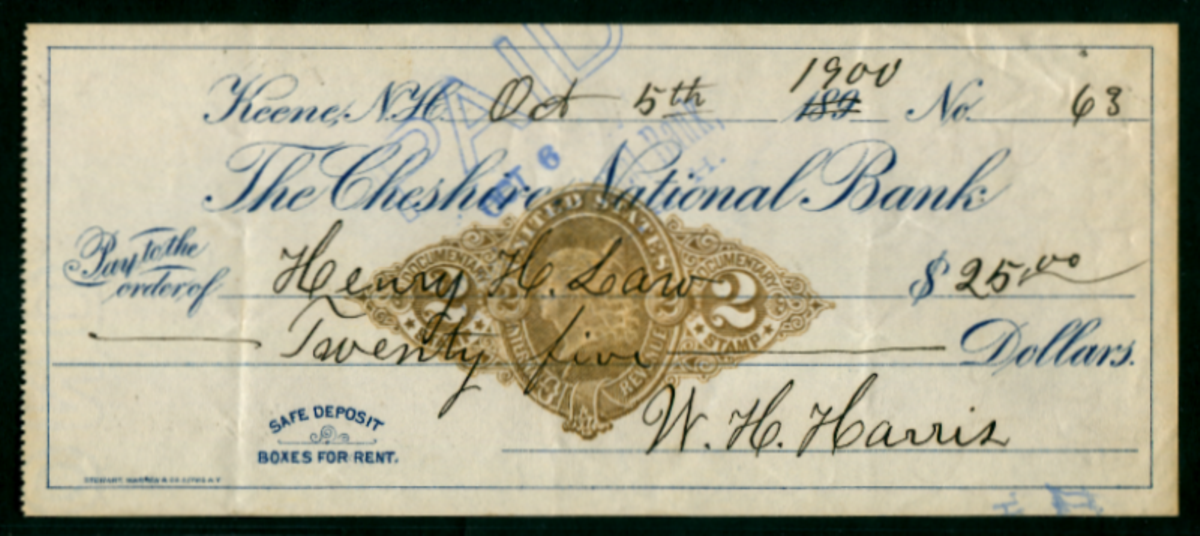 PAID
1900
Keene, N.H. Oct 5th 189 No. 63
OCT 6
Bank,
The Cheshire National Bank
UNITED STATES
Pay to the
order of Henry H. Law $ 25.00
DOCUMENTARY DOCUMENTARY
2 2
STAMP
Twenty five Dollars.
W. H. Harris
SAFE DEPOSIT
BOXES FOR RENT.